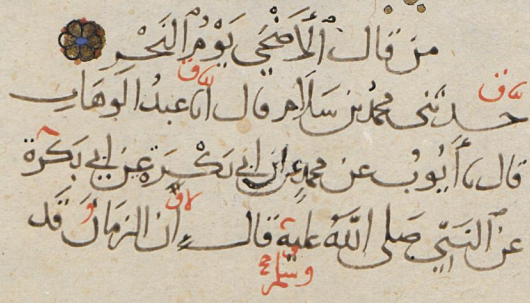 من قال الأضحى يوم النحر
حدثني محمد بن سلام قال انا عبد الوهاب
قال نا أيوب عن محمد عن ابن ابي بكرة عن ابي بكرة
عن النبي صلى الله عليه قال إن الزمان قد
وسلم